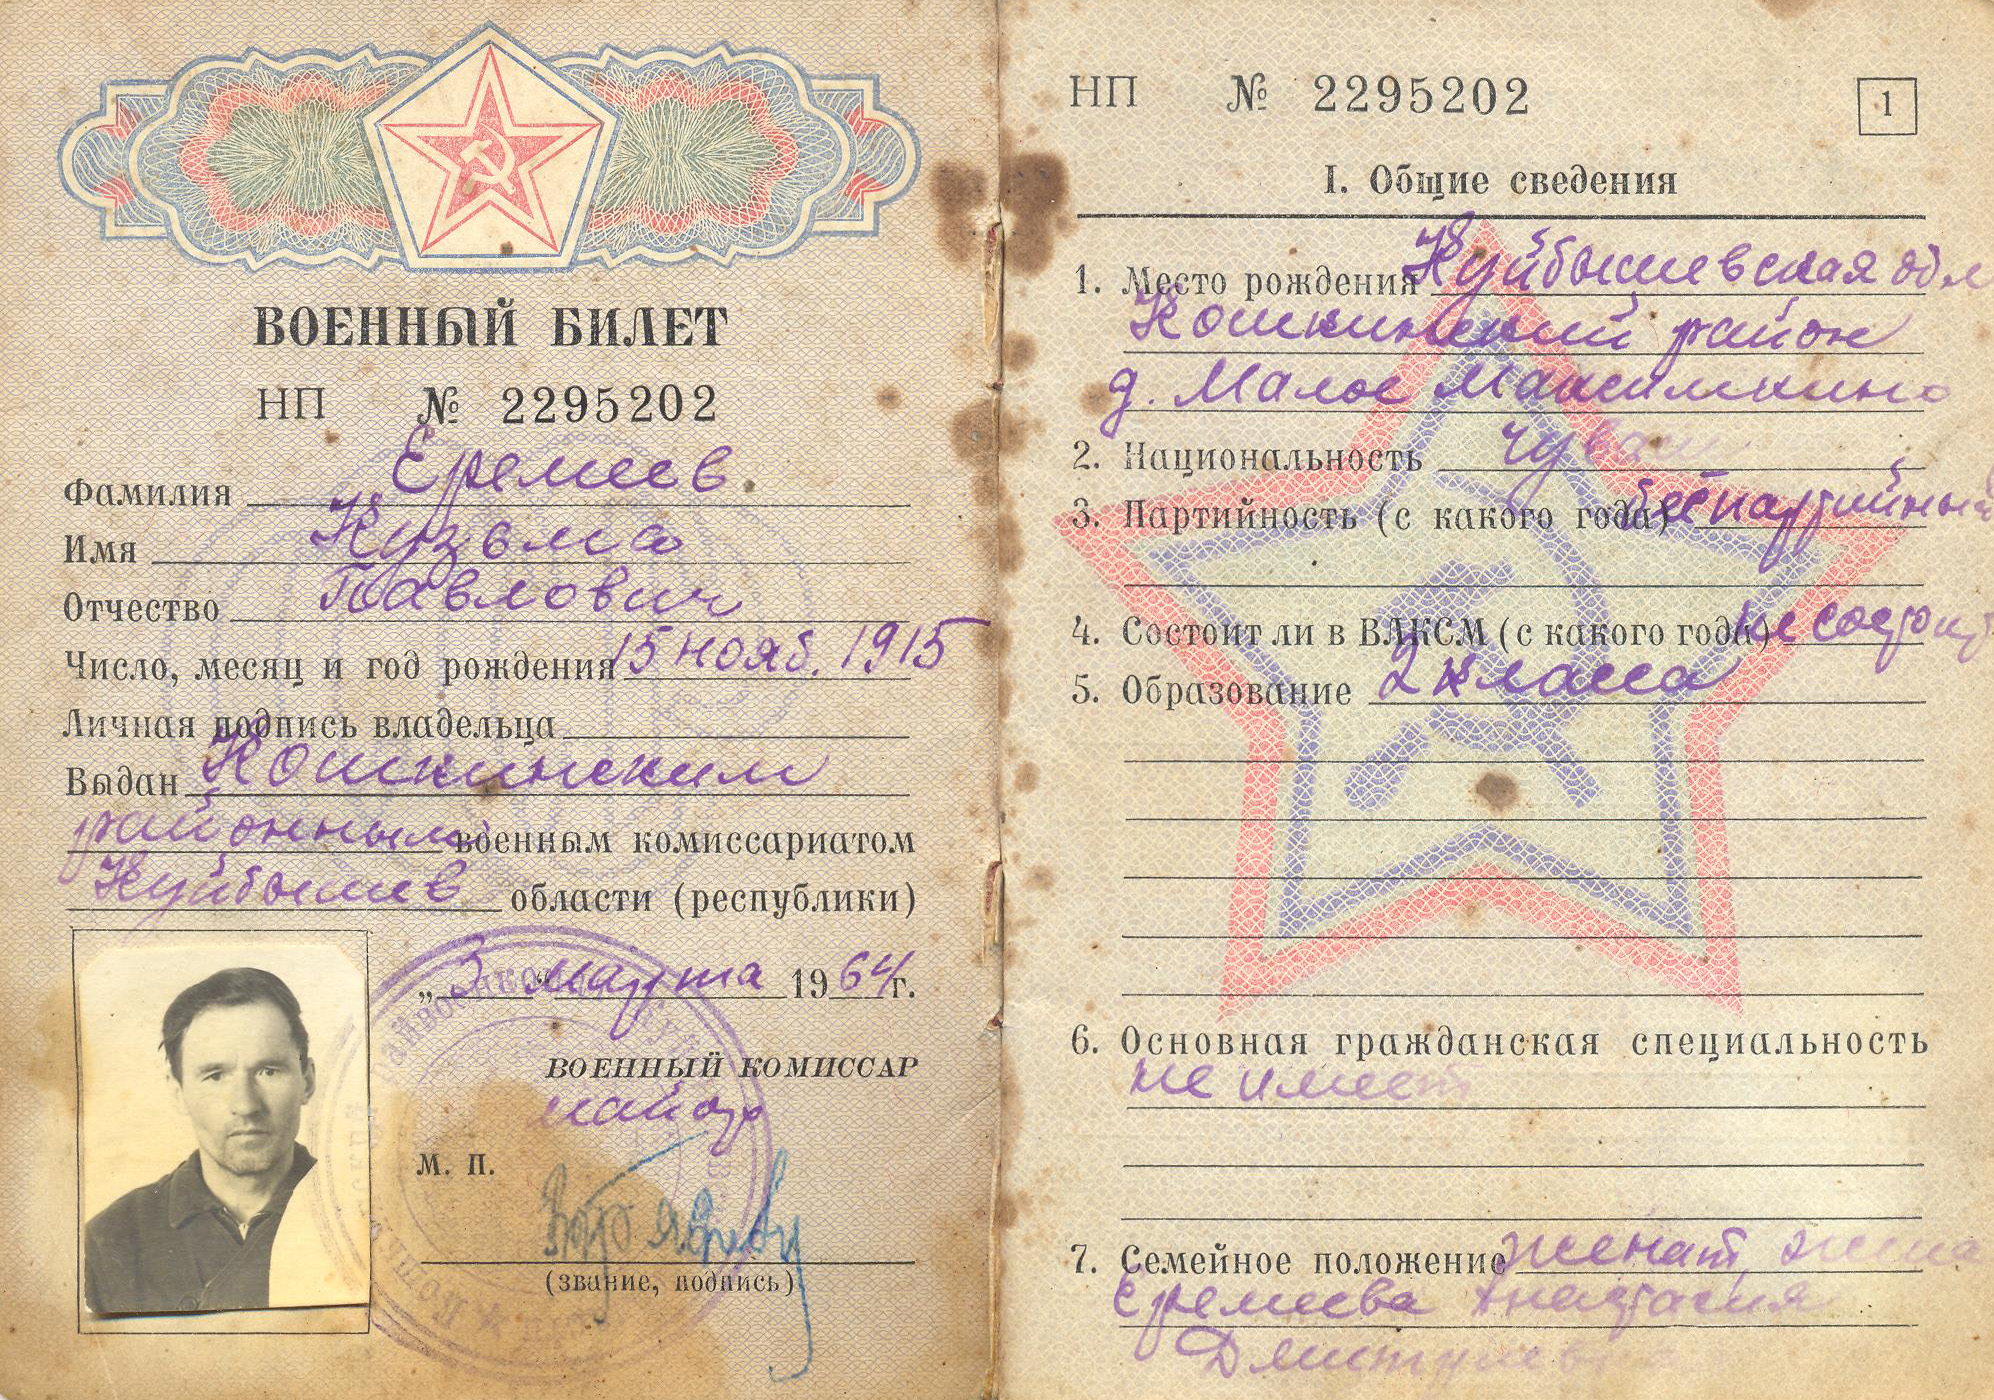 ВОЕННЫЙ БИЛЕТ
НП № 2295202
Фамилия Еремеев
Имя Кузьма
Отчество Павлович
Число, месяц и год рождения 15 нояб. 1915
Личная подпись владельца
Выдан Кошкинским
районным военным комиссариатом
Куйбышев области (республики)
„3“ марта 1964 г.
ВОЕННЫЙ КОМИССАР
майор
М. П.
(звание, подпись)
НП № 2295202
1
I. Общие сведения
1. Место рождения Куйбышевская обл
Кошкинский район
д. Малое Максимкино
2. Национальность чуваш
3. Партийность (с какого года) беспартийный
4. Состоит ли в ВЛКСМ (с какого года) не состоит
5. Образование 2 класса
6. Основная гражданская специальность
не имеет
7. Семейное положение женат, жена
Еремеева Анастасия
Дмитриевна